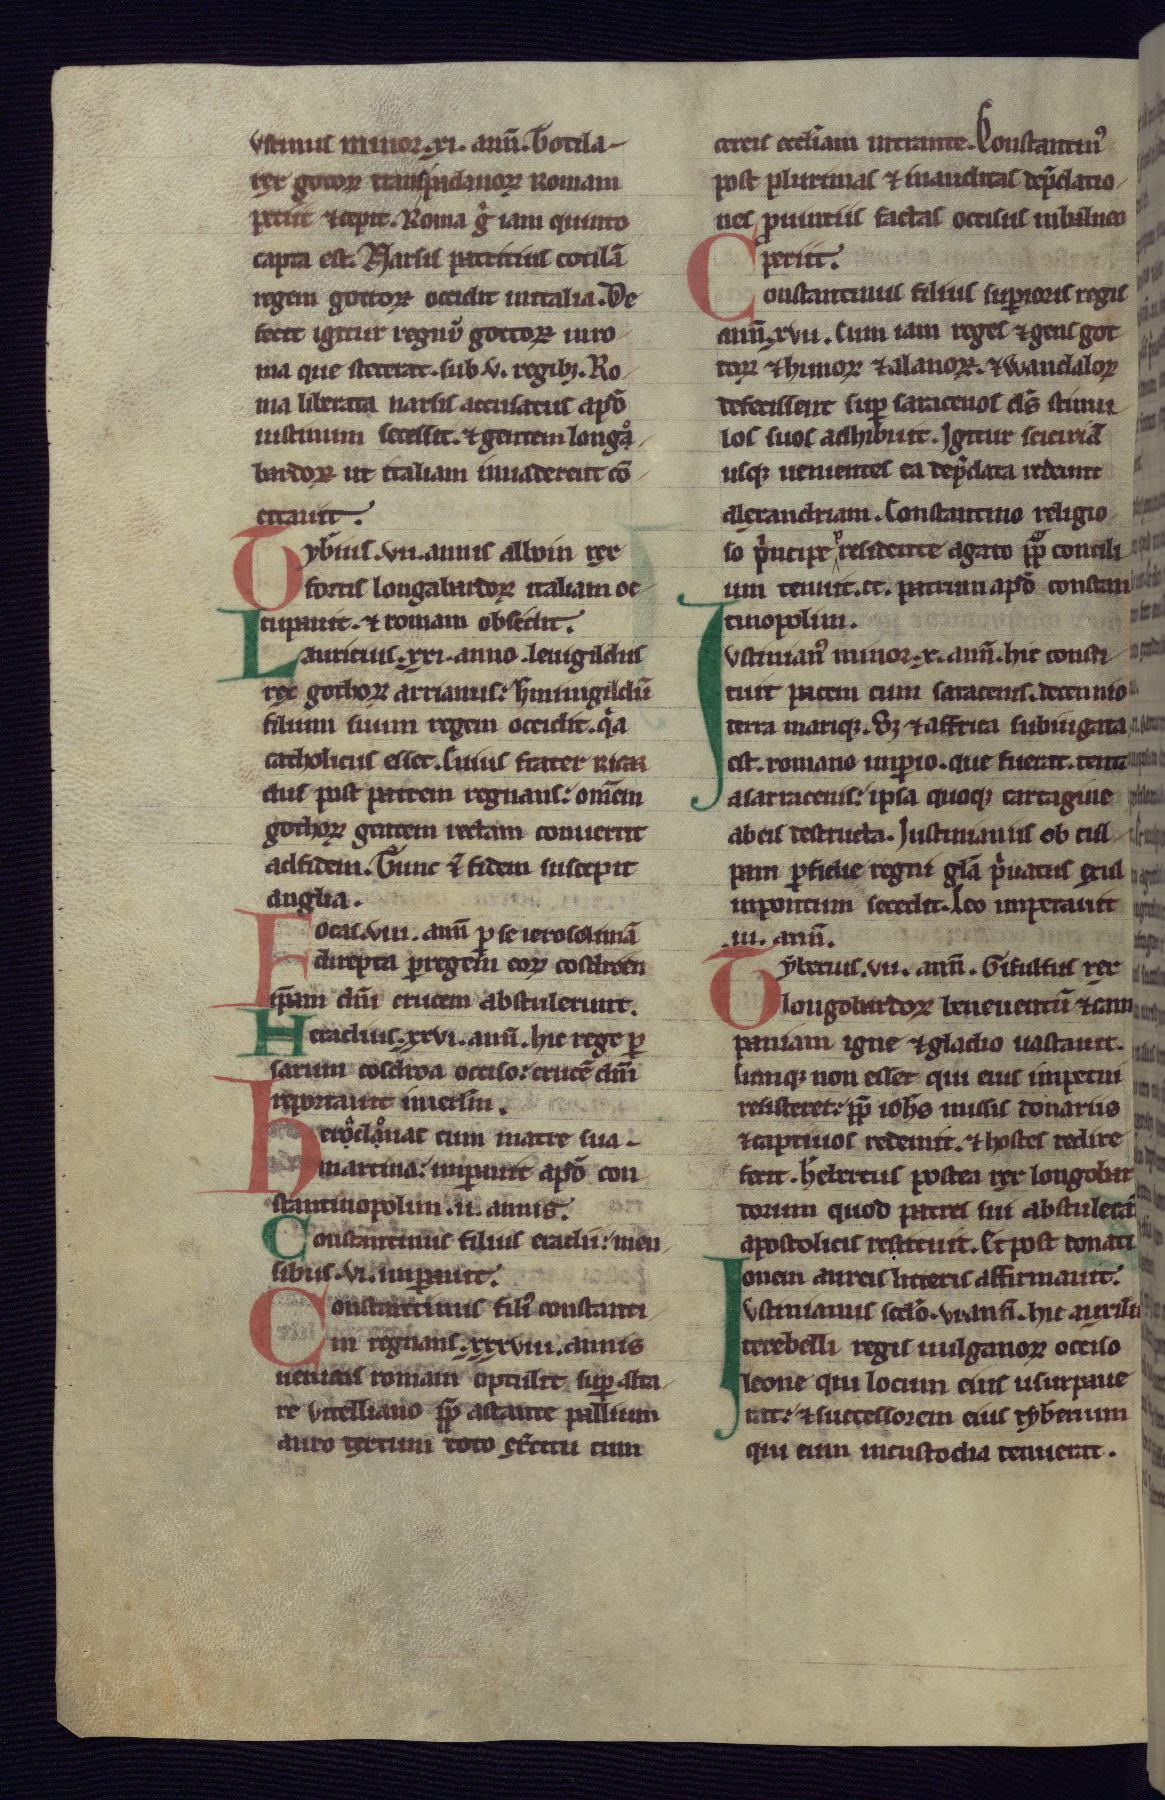 vstinus minor .xi. ann̄. Totila
rex gotoꝝ transpadanoꝝ Romam
petiit ⁊ cepit. Roma g̊ iam quinto
capta est. Narsis patritius totilā
regem gottoꝝ occidit in italia. De
fecit igitur regnū gottoꝝ in ro
ma que steterat sub .v. regibꝫ. Ro
ma liberata narsis accusatus apd̄
iustinum secessit. ⁊ gentem longo
bardoꝝ ut italiam inuaderent cō
citauit.
Tyberius .vii. annis alboin rex
fortis longabardoꝝ italiam oc
cupauit. ⁊ romam obsedit.
Lauricius .xxi. anno. leuigildus
rex gothoꝝ arrianus: h̄minigildū
filium suum regem occidit. q̄a
catholicus esset. Cuius frater ricar
dus post patrem regnans: om̄em
gothoꝝ gentem rectam conuertit
ad fidem. Tunc ⁊ fidem suscepit
anglia.
Focas .viii. ann̄ ꝑ se ierosolimā
direpta ꝑ regem eoꝝ cosdroen
ip̄am dn̄i crucem abstulerunt.
Heraclius .xxvi. ann̄. hic rege ꝑ
sarum cosdroa occiso: crucē dn̄i
reportauit in ierl̄m.
Heroclonas cum matre sua
martina: imꝑauit apd̄ con
stantinopolim .ii. annis.
Constantinus filius eraclii: men
sibus .vi. imꝑauit.
Constantinus fili᷒ constanti
ni regnans .xxxviii. annis
ueniens romam optulit suꝑ alta
re vitelliano pp̄ astante pallium
auro textum toto ex̄ercitu cum
cereis eccl̄iam intrante. Constantin᷒
post plurimas ⁊ inauditas dep̄datio
nes ꝓuintiis factas occisus in balneo
periit.
Constantinus filius suꝑioris regis
ann̄ .xvii. Cum iam reges ⁊ gens got
toꝝ ⁊ hunoꝝ ⁊ alanoꝝ. ⁊ wandaloꝝ
defecissent suꝑ saracenos dn̄s stimu
los suos adhibuit. Igitur siciliā
usqꝫ uenientes ea dep̄data redeunt
alexandriam. Constantino religio
so p̄ncipe residente agato pp̄ concili
um tenuit .cc. patrum apd̄ constan
tinopolim.
Iustinian᷒ minor .x. ann̄. hic consti
tuit pacem cum saracenis. decennio
terra mariqꝫ. Sꝫ ⁊ affrica subiugata
est. romano imꝑio. que fuerat tenta
a sarracenis: ipsa quoqꝫ cartagine
ab eis destructa. Iustinianus ob cul
pam ꝑfidie regni gl̄a p̄uatus exul
in pontum secedit. Leo imperauit
.iii. ann̄.
Tyberius .vii. ann̄. Gisulfus rex
longobardoꝝ beneuentū ⁊ cam
paniam igne ⁊ gladio uastauit.
Cumqꝫ non esset qui eius impetui
resisteret: pp̄ ioh̄s missis donariis
⁊ captiuos redemit. ⁊ hostes redire
fecit. Helretus postea rex longobar
dorum quod patres sui abstulerāt
apostolicis restituit. Et post donati
onem aureis litteris affirmauit.
Iustinianus scd̄o .vi. ann̄. hic auxilio
terebelli regis uulgarioꝝ occiso
leone qui locum eius usurpaue
rat: ⁊ successorem eius tyberium
qui eum in custodia tenuerat.